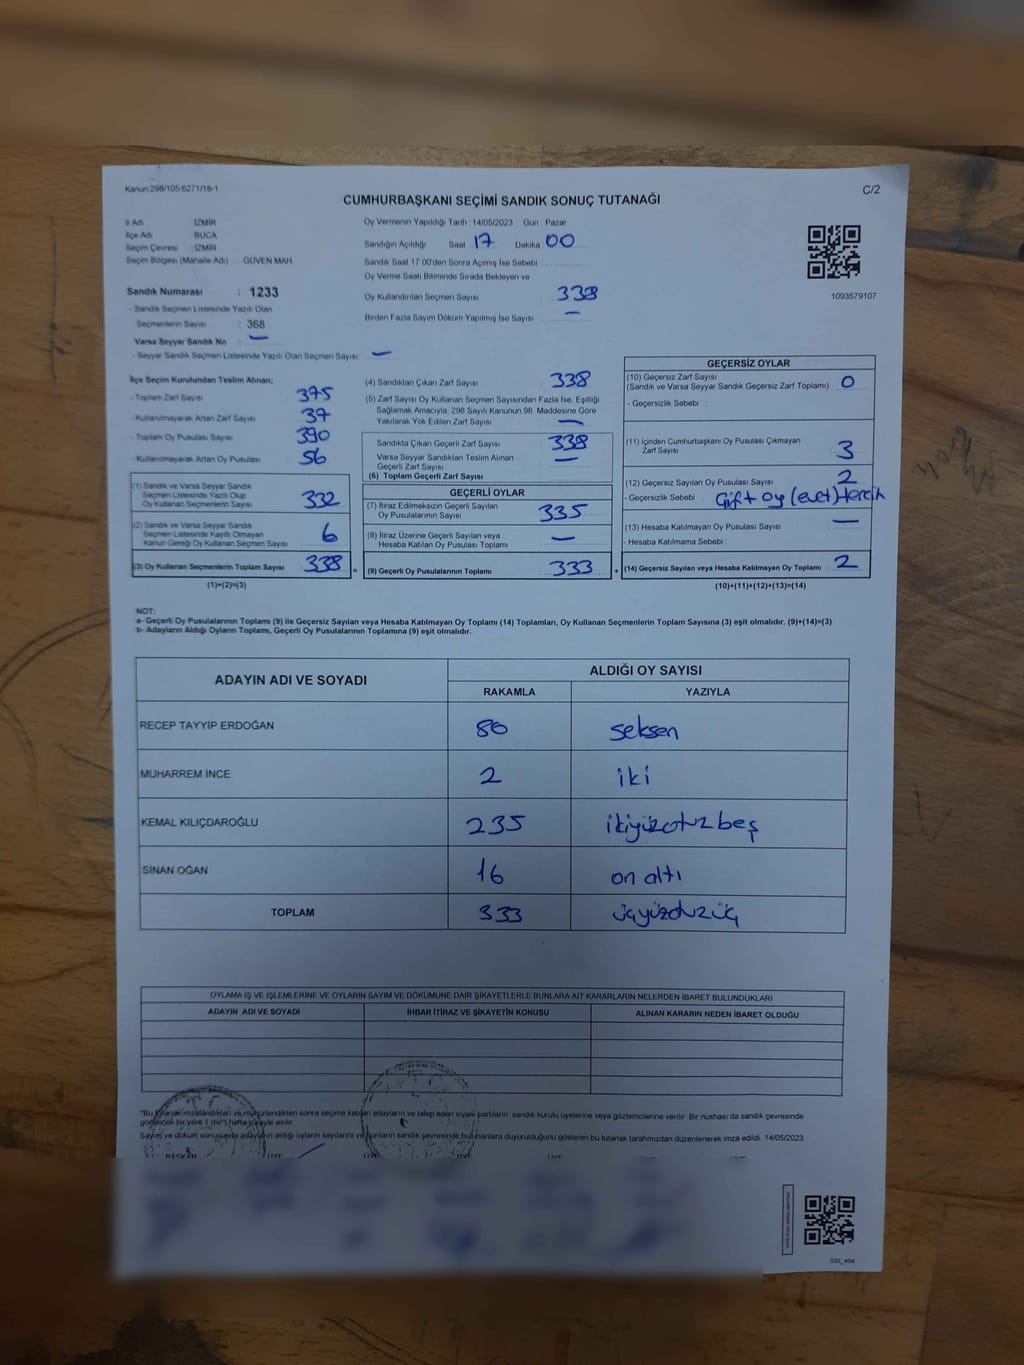 Kanun:298/105:6271/18-1
C/2
CUMHURBAŞKANI SEÇİMİ SANDIK SONUÇ TUTANAĞI
İl Adı İZMİR
İlçe Adı BUCA
Seçim Çevresi : İZMİR
Seçim Bölgesi (Mahalle Adı) GÜVEN MAH
Sandık Numarası : 1233
- Sandık Seçmen Listesinde Yazılı Olan
Seçmenlerin Sayısı : 368
Varsa Seyyar Sandık No : —
- Seyyar Sandık Seçmen Listesinde Yazılı Olan Seçmen Sayısı : —
Oy Vermenin Yapıldığı Tarih : 14/05/2023 Gün : Pazar
Sandığın Açıldığı Saat 17 Dakika 00
Sandık Saat 17 00'den Sonra Açımış İse Sebebi
Oy Verme Saati Bitiminde Sırada Bekleyen ve
Oy Kullandırılan Seçmen Sayısı : 338
Birden Fazla Sayım Döküm Yapılmış İse Sayısı : —
1093579107
İlçe Seçim Kurulundan Teslim Alınan;
- Toplam Zarf Sayısı 375
- Kullanılmayarak Artan Zarf Sayısı 37
- Toplam Oy Pusulası Sayısı 390
- Kullanılmayarak Artan Oy Pusulası 56
(1) Sandık ve Varsa Seyyar Sandık
Seçmen Listesinde Yazılı Olup
Oy Kullanan Seçmenlerin Sayısı 332
(2) Sandık ve Varsa Seyyar Sandık
Seçmen Listesinde Kayıtlı Olmayan
Kanun Gereği Oy Kullanan Seçmen Sayısı 6
(3) Oy Kullanan Seçmenlerin Toplam Sayısı 338 =
(1)+(2)=(3)
(4) Sandıktan Çıkan Zarf Sayısı 338
(5) Zarf Sayısı Oy Kullanan Seçmen Sayısından Fazla İse, Eşitliği
Sağlamak Amacıyla, 298 Sayılı Kanunun 98. Maddesine Göre
Yakılarak Yok Edilen Zarf Sayısı —
Sandıkta Çıkan Geçerli Zarf Sayısı 338
Varsa Seyyar Sandıktan Teslim Alınan
Geçerli Zarf Sayısı —
(6) Toplam Geçerli Zarf Sayısı
GEÇERLİ OYLAR
(7) İtiraz Edilmeksizin Geçerli Sayılan
Oy Pusulalarının Sayısı 335
(8) İtiraz Üzerine Geçerli Sayılan veya
Hesaba Katılan Oy Pusulası Toplamı —
(9) Geçerli Oy Pusulalarının Toplamı 333 +
GEÇERSİZ OYLAR
(10) Geçersiz Zarf Sayısı
(Sandık ve Varsa Seyyar Sandık Geçersiz Zarf Toplamı) 0
- Geçersizlik Sebebi :
(11) İçinden Cumhurbaşkanı Oy Pusulası Çıkmayan
Zarf Sayısı 3
(12) Geçersiz Sayılan Oy Pusulası Sayısı 2
- Geçersizlik Sebebi : Çift oy (evet) tercih
(13) Hesaba Katılmayan Oy Pusulası Sayısı —
- Hesaba Katılmama Sebebi :
(14) Geçersiz Sayılan veya Hesaba Katılmayan Oy Toplamı 2
(10)+(11)+(12)+(13)=(14)
NOT:
a- Geçerli Oy Pusulalarının Toplamı (9) ile Geçersiz Sayılan veya Hesaba Katılmayan Oy Toplamı (14) Toplamları, Oy Kullanan Seçmenlerin Toplam Sayısına (3) eşit olmalıdır. (9)+(14)=(3)
b- Adayların Aldığı Oyların Toplamı, Geçerli Oy Pusulalarının Toplamına (9) eşit olmalıdır.
ADAYIN ADI VE SOYADI ALDIĞI OY SAYISI
RAKAMLA YAZIYLA
RECEP TAYYİP ERDOĞAN 80 seksen
MUHARREM İNCE 2 iki
KEMAL KILIÇDAROĞLU 235 ikiyüzotuzbeş
SİNAN OĞAN 16 on altı
TOPLAM 333
OYLAMA İŞ VE İŞLEMLERİNE VE OYLARIN SAYIM VE DÖKÜMÜNE DAİR ŞİKAYETLERLE BUNLARA AİT KARARLARIN NELERDEN İBARET BULUNDUKLARI
ADAYIN ADI VE SOYADI İHBAR İTİRAZ VE ŞİKAYETİN KONUSU ALINAN KARARIN NEDEN İBARET OLDUĞU
sonra seçime katılan adayların ve talep eden siyasi partilerin sandık kurulu üyelerine veya gözlemcilerine verilir. Bir nüshası da sandık çevresinde
Sayım ve döküm sonucunda adayların aldığı oyların sayılarını ve bunların sandık çevresinde bulunanlara duyurulduğunu gösteren bu tutanak tarafımızdan düzenlenerek imza edildi. 14/05/2023
BAŞKAN ÜYE
SSI_404